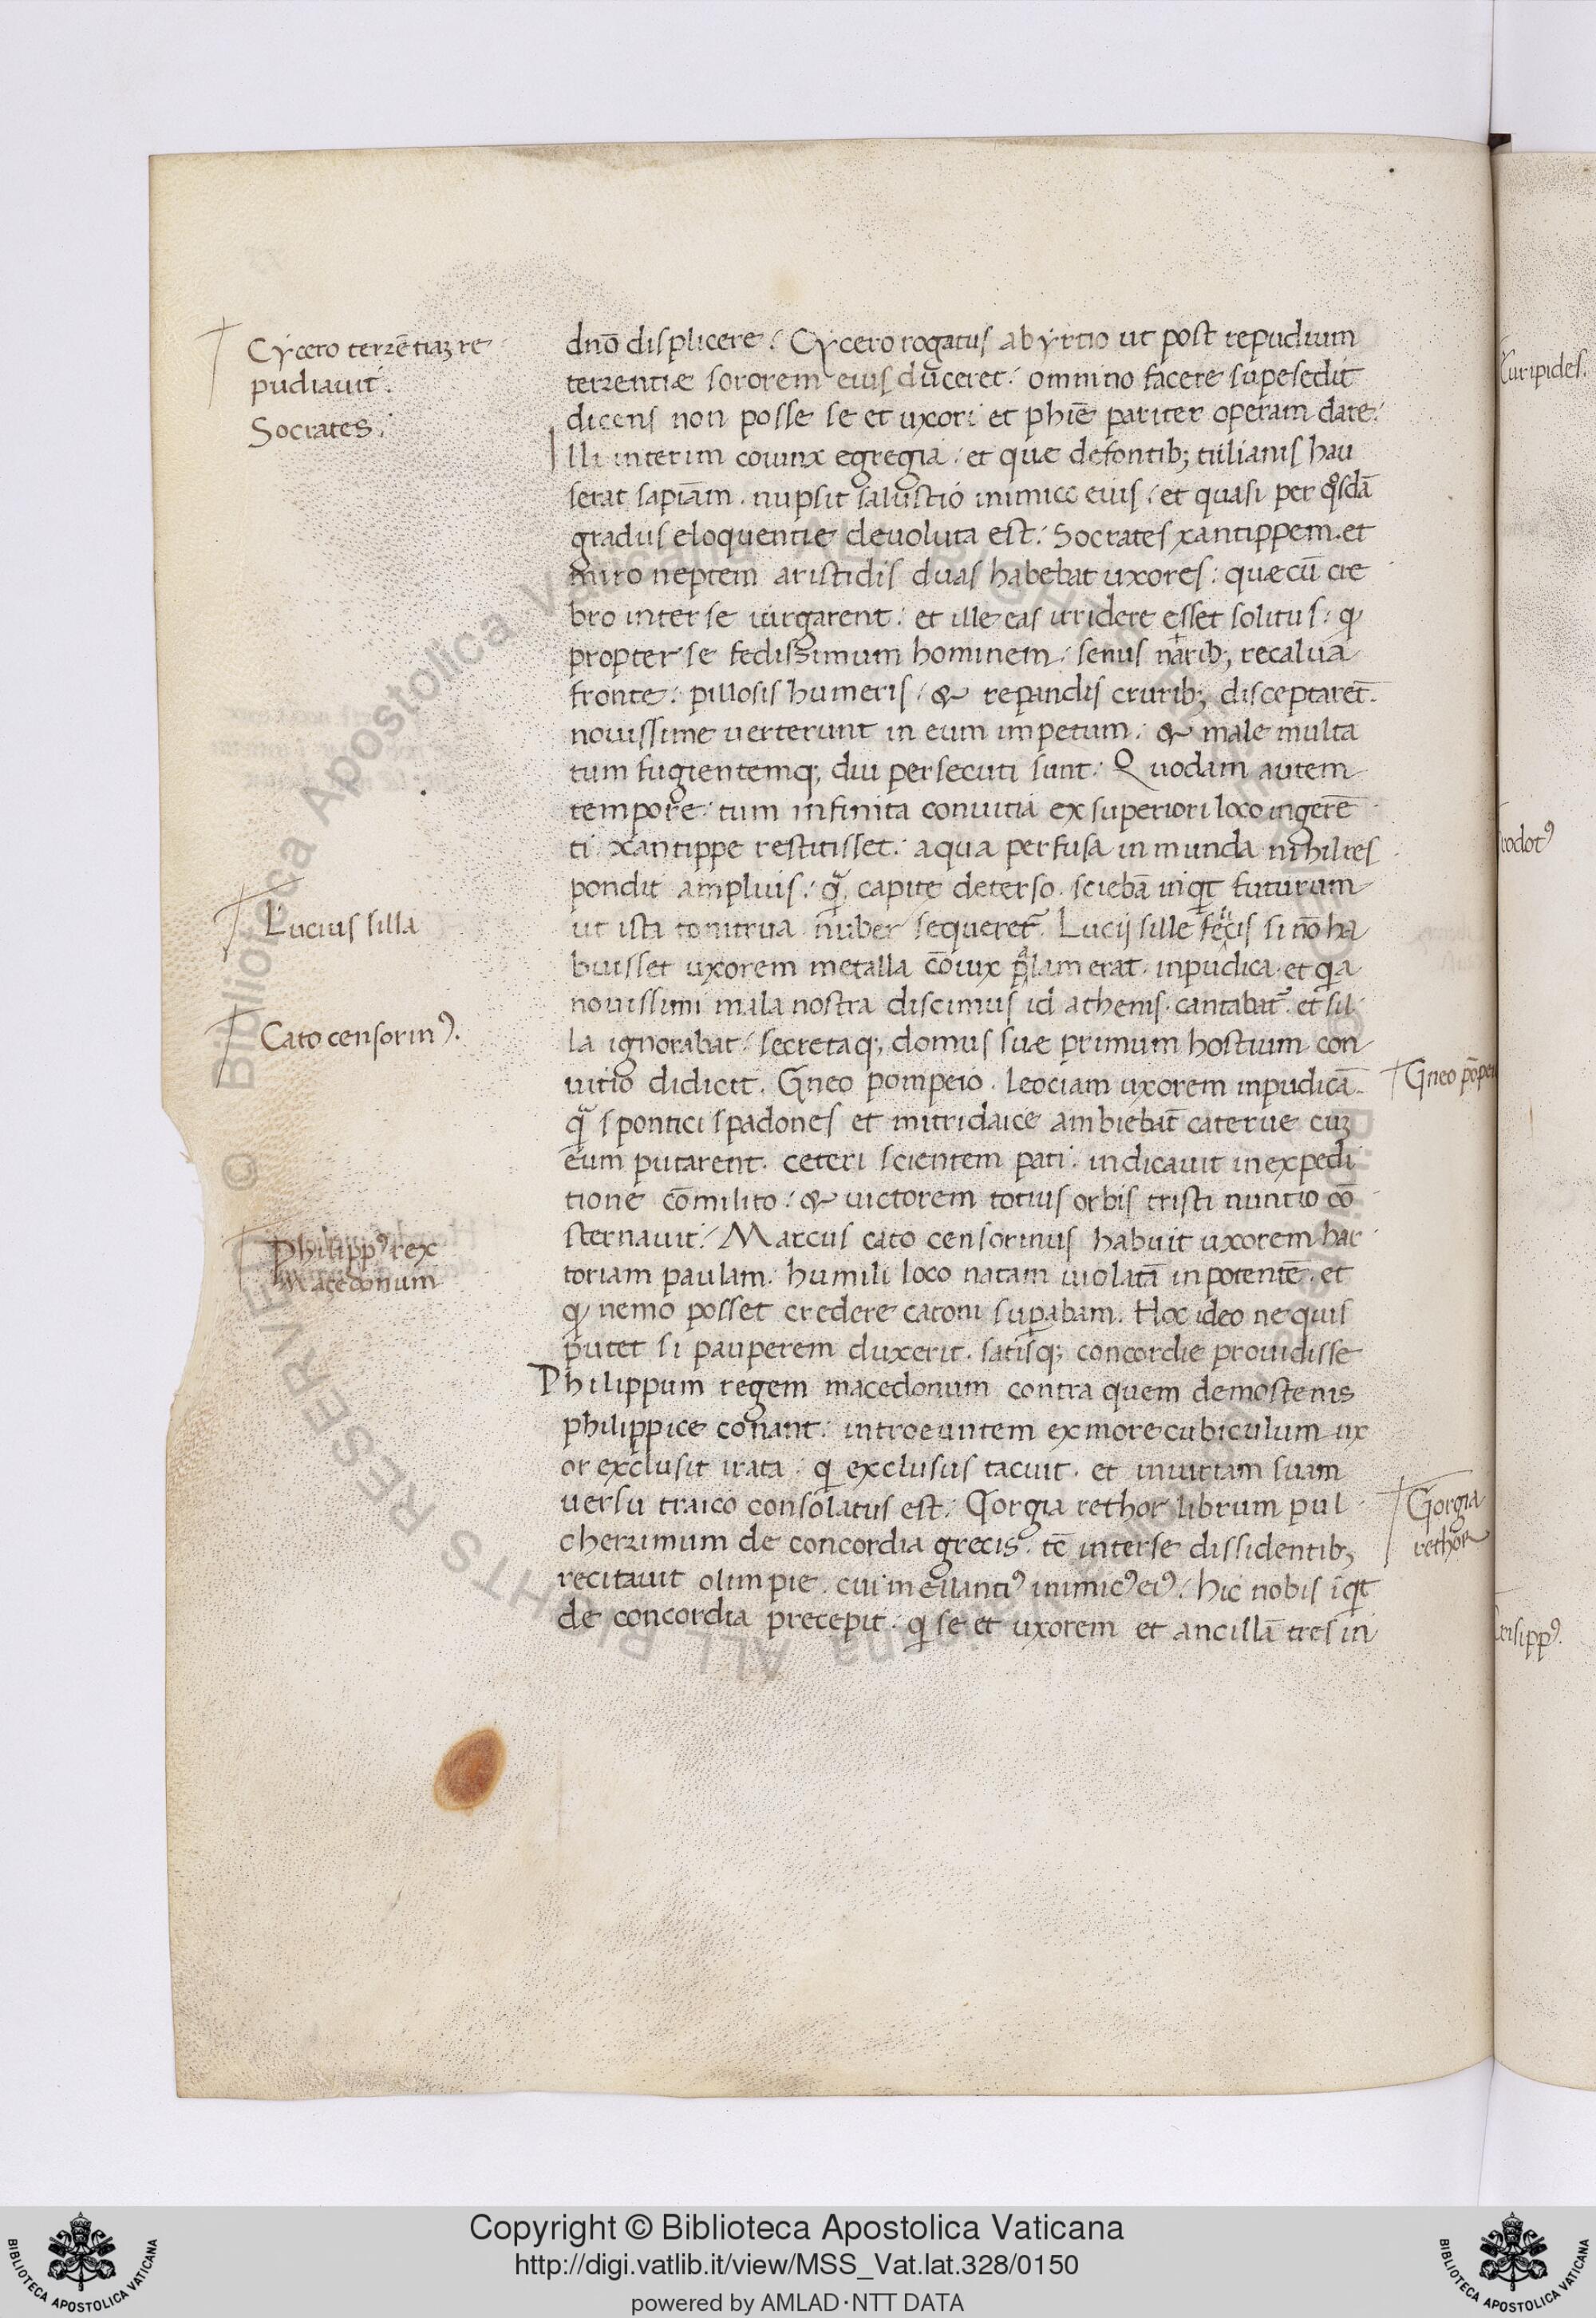 Cycero terrẽtiaꝫ re
pudiauit.
Socrates.
dnõ displicere. Cycero rogatus ab yrtio ut post repudium
terrentiæ sororem eius duceret. omnino facere supesedit
dicens non posse se et uxori et phiẽ pariter operam dare.
Illi interim coiunx egregia. et quæ defontibꝫ tulianis hau
serat sapiãm. nupsit salustio inimico eius. et quasi per qͦsdã
gradus eloquentie deuoluta est. Socrates xantippem. et
miro neptem aristidis duas habebat uxores. quæ cũ cre
bro inter se iurgarent. et ille eas irridere esset solitus. ꝙ
propter se fedissimum hominem. semis naribꝫ recalua
fronte. pillosis humeris. & repandis cruribꝫ disceptaret̃.
nouissime uerterunt in eum impetum. & male multa
tum fugientemqꝫ diu persecuti sunt. Quodam autem
tempore. tum infinita conuitia ex superiori loco ingerẽ
ti xantippe restitisset. aqua perfusa inmunda nihil res
pondit amplius. qͣ capite deterso. sciebã inqͥt futurum
ut ista tonitrua nuber sequeret̃. Lucij sille felicis si nõ ha
buisset uxorem metalla cõiux palam erat inpudica. et qͥa
nouissimi mala nostra discimus id athenis. cantabat̃. et sil
la ignorabat. secretaqꝫ domus suæ primum hostium con
uitio didicit. Gneo pompeio. leociam uxorem inpudicã
qͣ spontici spadones et mitridaice ambiebãt caterue cuꝫ
eum putarent. ceteri scientem pati. indicauit in expedi
tione cõmilito. & uictorem totius orbis tristi nuntio cõ
sternauit. Marcus cato censorinus habuit uxorem har
toriam paulam. humili loco natam uiolatã inpotentẽ. et
ꝙ nemo posset credere catoni suꝑabam. Hoc ideo ne quis
putet si pauperem duxerit. satisqꝫ concordie prouidisse
Philippum regem macedonum contra quem demostenis
philippice conant. introeuntem ex more cubiculum ux
or exclusit irata. qͥ exclusus tacuit. et iniuriam suam
uersu traico consolatus est. Gorgia rethor librum pul
cherrimum de concordia grecis. tc̃ inter se dissidentibꝫ
recitauit olimpie. cui meilantiꝰ inimicꝰ eiꝰ. hic nobis iqͥt
de concordia precepit. qͥ se et uxorem et ancillã tres in
Lucius silla
Cato censorinꝰ.
Philippꝰ rex
macedonum
Gneo põpei
Gorgia
rethor
Euripides.
Copyright © Biblioteca Apostolica Vaticana
http://digi.vatlib.it/view/MSS_Vat.lat.328/0150
powered by AMLAD·NTT DATA
BIBLIOTECA APOSTOLICA VATICANA
BIBLIOTECA APOSTOLICA VATICANA
© Biblioteca Apostolica Vaticana ALL RIGHTS RESERVED